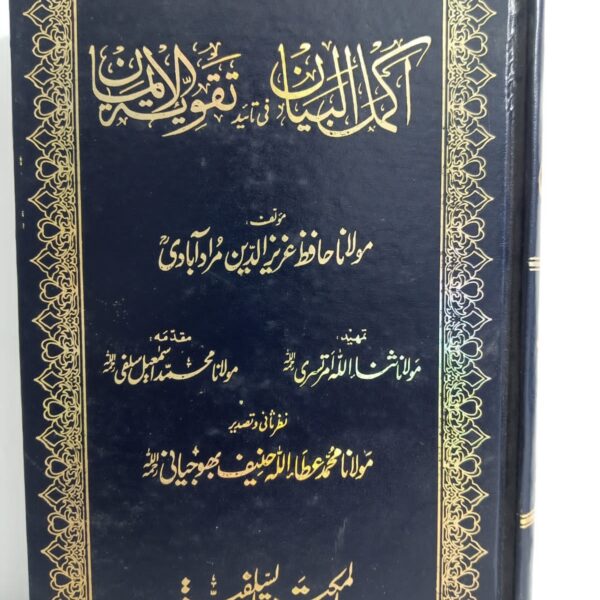 اکمل البیان فی تایید تقویۃ الایمان
مؤلف:
مولانا حافظ عزیز الدین مراد آبادیؒ
تمہید:
مولانا ثناء اللہ امرتسری رحمہ اللہ
مقدمہ:
مولانا محمد اسمٰعیل سلفی رحمہ اللہ
نظر ثانی و تصدیر
مولانا محمد عطاء اللہ حنیف بھوجیانی رحمہ اللہ
المکتبۃ السلفیۃ